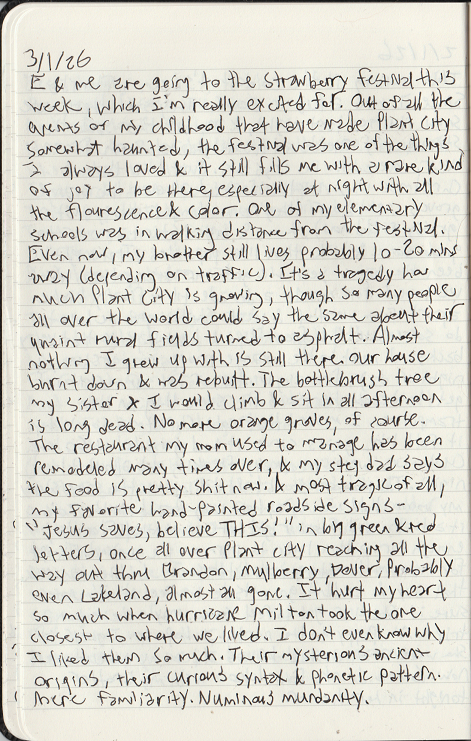 3/1/26
E & me are going to the strawberry festival this
week, which I'm really excited for. Out of all the
events of my childhood that have made Plant City
somewhat haunted, the festival was one of the things
I always loved & it still fills me with a rare kind
of joy to be there, especially at night with all
the flourescence & color. One of my elementary
schools was in walking distance from the festival.
Even now, my brother still lives probably 10-20 mins
way (depending on traffic). It's a tragedy how
much Plant City is growing, though so many people
all over the world could say the same about their
quaint rural fields turned to asphalt. Almost
nothing I grew up with is still there. Our house
burnt down & was rebuilt. The bottlebrush tree
my sister & I would climb & sit in all afternoon
is long dead. No more orange groves, of course.
The restaurant my mom used to manage has been
remodeled many times over, & my step dad says
the food is pretty shit now. & most tragic of all,
my favorite hand-painted roadside signs-
"Jesus saves, believe THIS!" in big green & red
letters, once all over Plant City reaching all the
way out thru Brandon, Mulberry, Dover, Probably
even Lakeland, almost all gone. It hurt my heart
so much when hurricane Milton took the one
closest to where we lived. I don't even know why
I liked them so much. Their mysterious ancient
origins, their curious syntax & phonetic pattern.
Mere familiarity. Numinous mundanity.